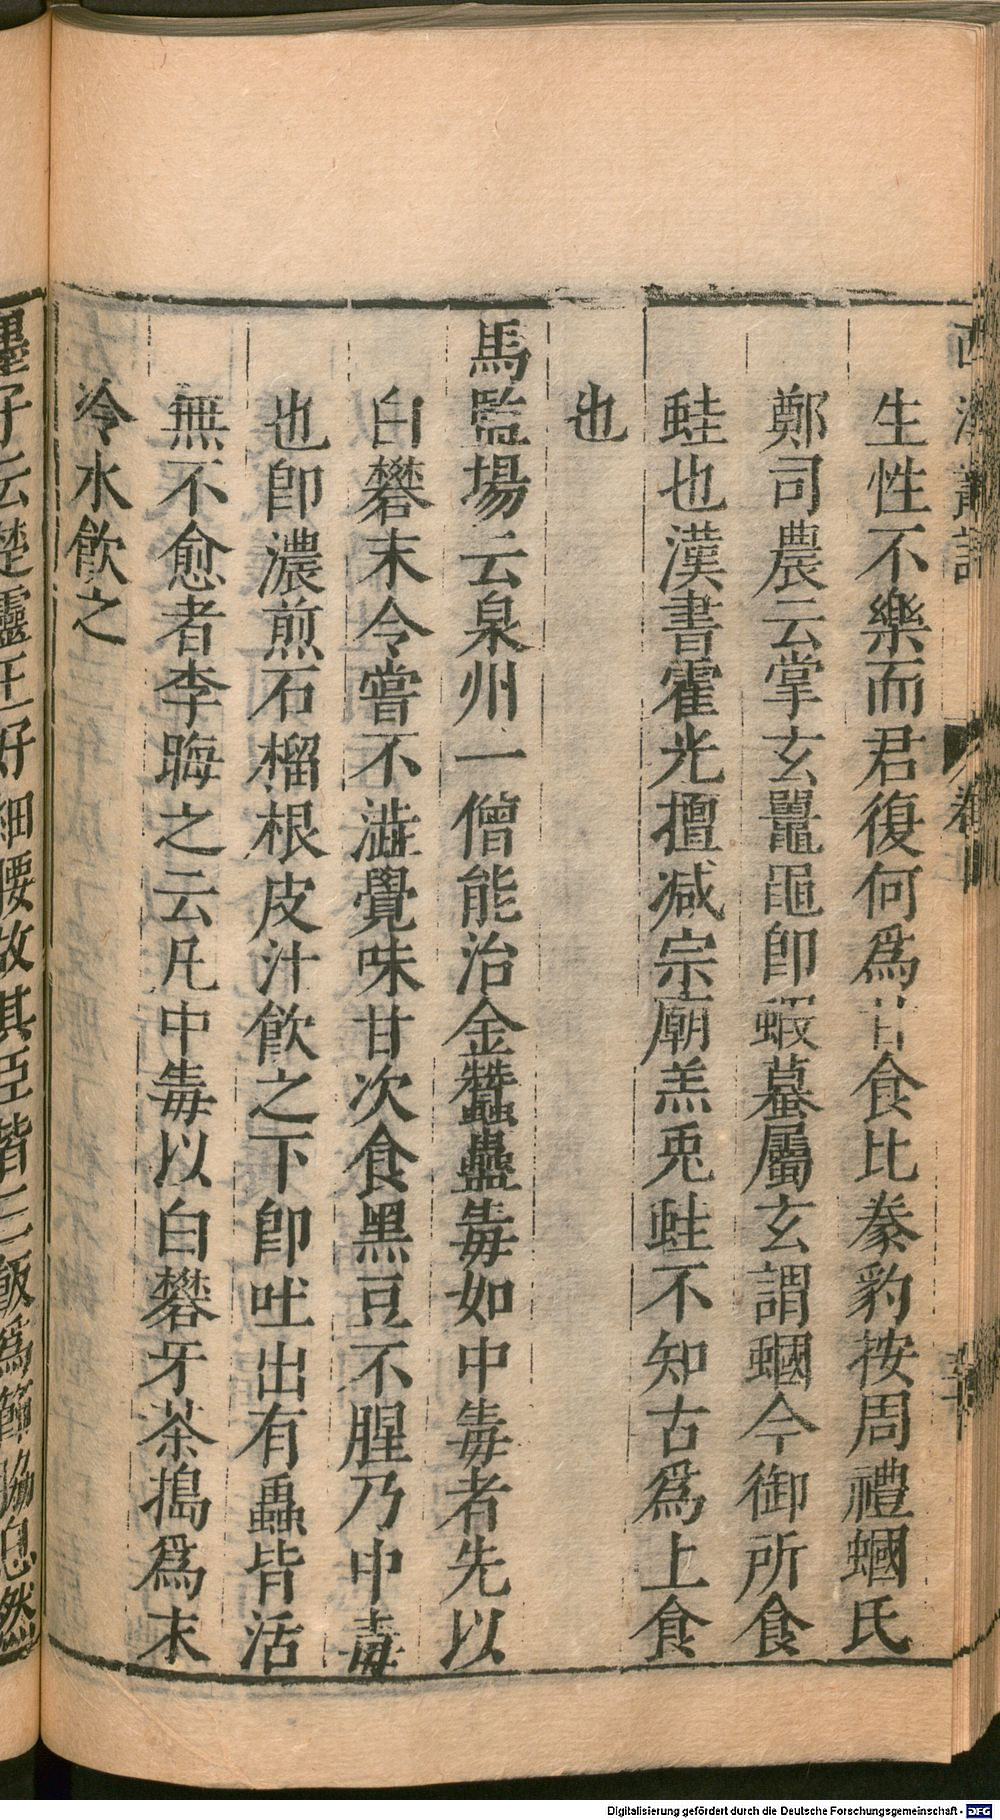 西溪叢語
卷上
生性不樂而君復何爲甘食比豢豹按周禮蟈氏
鄭司農云掌玄鼉黽卽蝦蟇屬玄謂蟈今御所食
蛙也漢書霍光擅減宗廟羔兎蛙不知古爲上食
也
馬監場云泉州一僧能治金蠶蠱毒如中毒者先以
白礬末令嘗不澁覺味甘次食黑豆不腥乃中毒
也卽濃煎石榴根皮汁飮之下卽吐出有蟲皆活
無不愈者李晦之云凡中毒以白礬牙茶搗爲末
冷水飮之
墨子云楚靈王好細腰故其臣皆三飯爲節脇息然
Digitalisierung gefördert durch die Deutsche Forschungsgemeinschaft - DFG